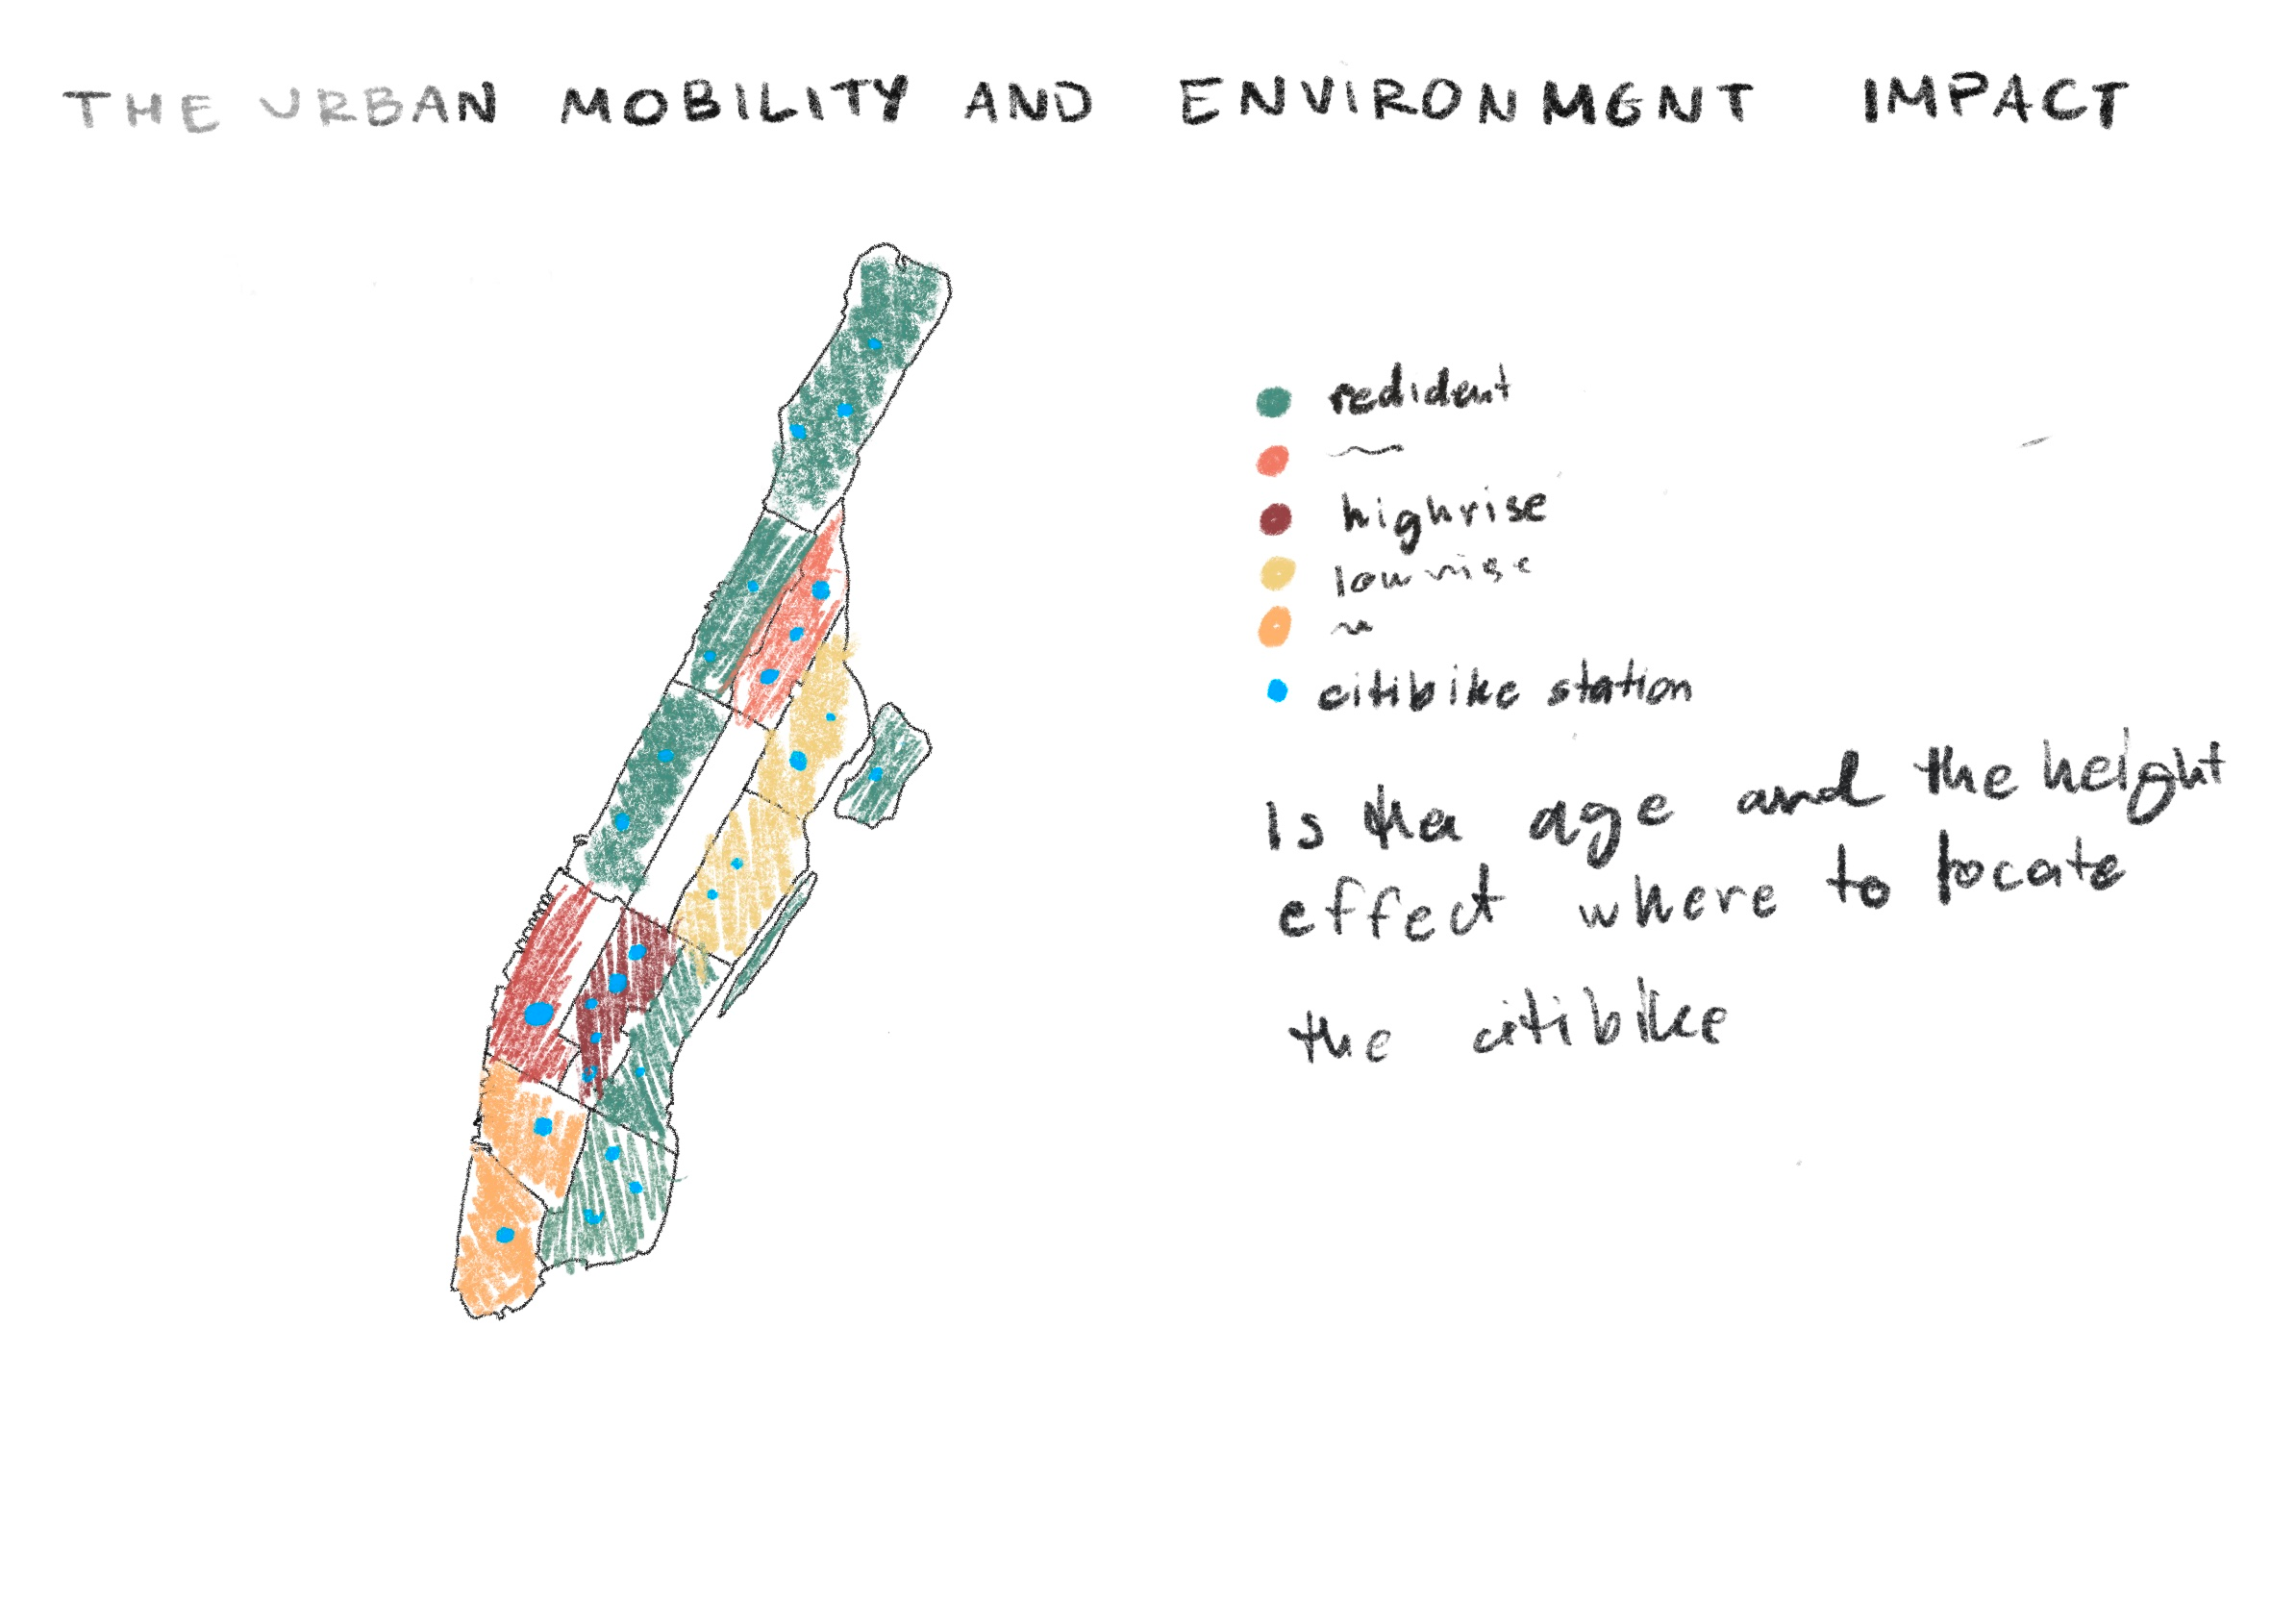 THE URBAN MOBILITY AND ENVIRONMENT IMPACT
redident
highrise
lowrise
citibike station
Is the age and the height
effect where to locate
the citibike